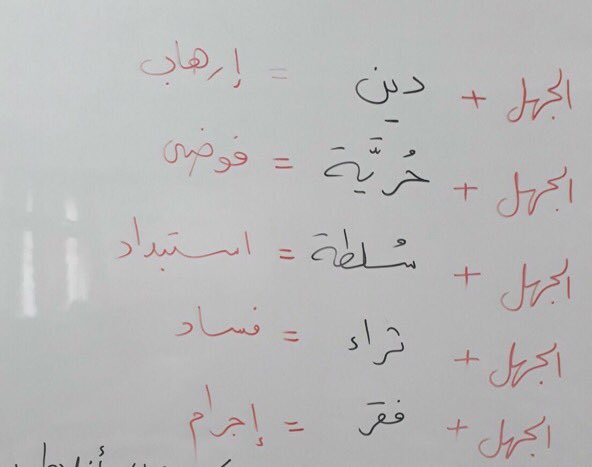 الجهل + دين = إرهاب
الجهل + حُريَّة = فوضى
الجهل + سُلطة = استبداد
الجهل + ثراء = فساد
الجهل + فقر = إجرام